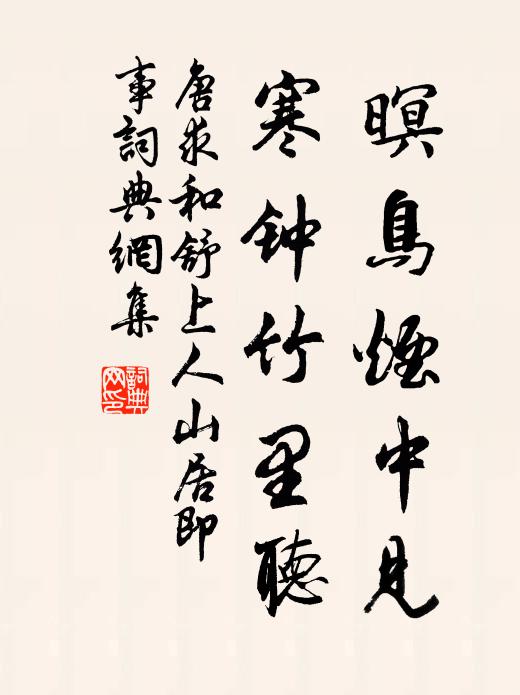 暝鳥煙中見
寒钟竹里聽
唐求和舒上人山居即
事詞典網集
詞典
网印